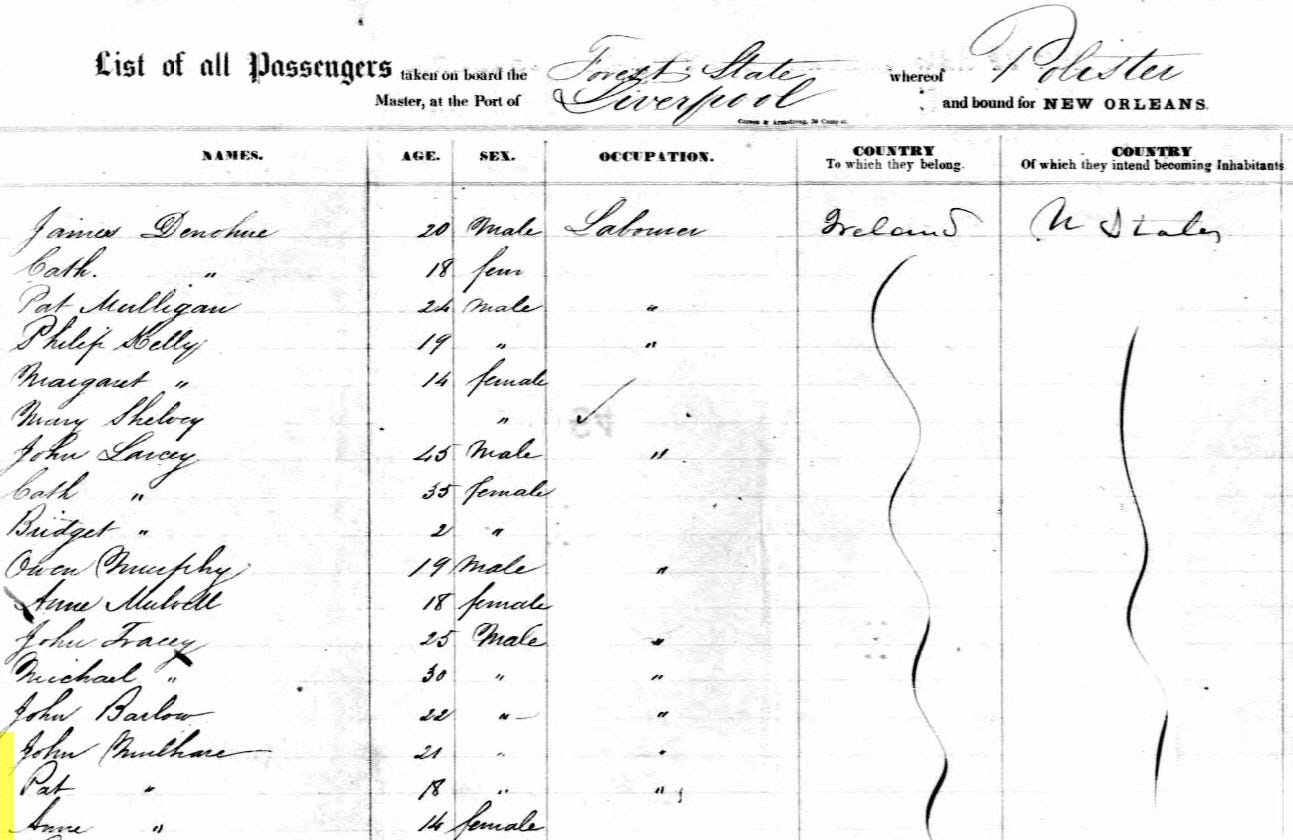 List of all Passengers taken on board the Forest State whereof Polister
Master, at the Port of Liverpool and bound for NEW ORLEANS.
NAMES. AGE. SEX. OCCUPATION. COUNTRY To which they belong. COUNTRY Of which they intend becoming Inhabitants
James Denohue 20 Male Labourer Ireland U States
Cath. " 18 fem
Pat Mulligan 24 Male "
Philip Kelly 19 " "
Margaret " 14 female
Mary "
John Larcey 45 Male "
Cath " 35 female
Bridget " 2 "
Owen Murphy 19 Male "
Anne 18 female
John Tracey 25 Male "
Michael " 30 " "
John Barlow 22 " "
John Mulhare 21 " "
Pat " 18 " "
Anne " 14 female